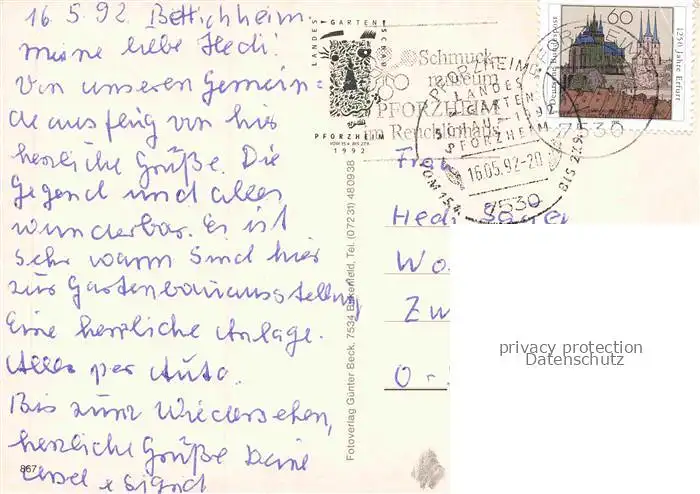 16.5.92. Bettichheim.
meine liebe Hedi!
Von unseren Gemein=
deausflug von hir
herzliche Grüße. Die
Gegend und alles
wunderbar. Es ist
sehr warm sind hier
zur Gartenbauausstellung
Eine herzliche Anlage.
Alles per Auto.
Bis zum Wiedersehen,
herzliche Grüße Deine
867
LANDES
GARTEN
SCHAU
PFORZHEIM
VOM 15.4. BIS 27.9.
1992
Schmuck
museum
PFORZHEIM
im Reuchlinhaus
PFORZHEIM
LANDES
GARTEN
SCHAU 1992
PFORZHEIM
16.05.92-20
VOM 15.4.
BIS 27.9.
7530
7530
60
Deutsche Bundespost
1250 Jahre Erfurt
Fotoverlag Günter Beck, 7534 Birkenfeld, Tel. (07231) 480938
Frau
Hedi
Wo
Zw
O-
privacy protection
Datenschutz